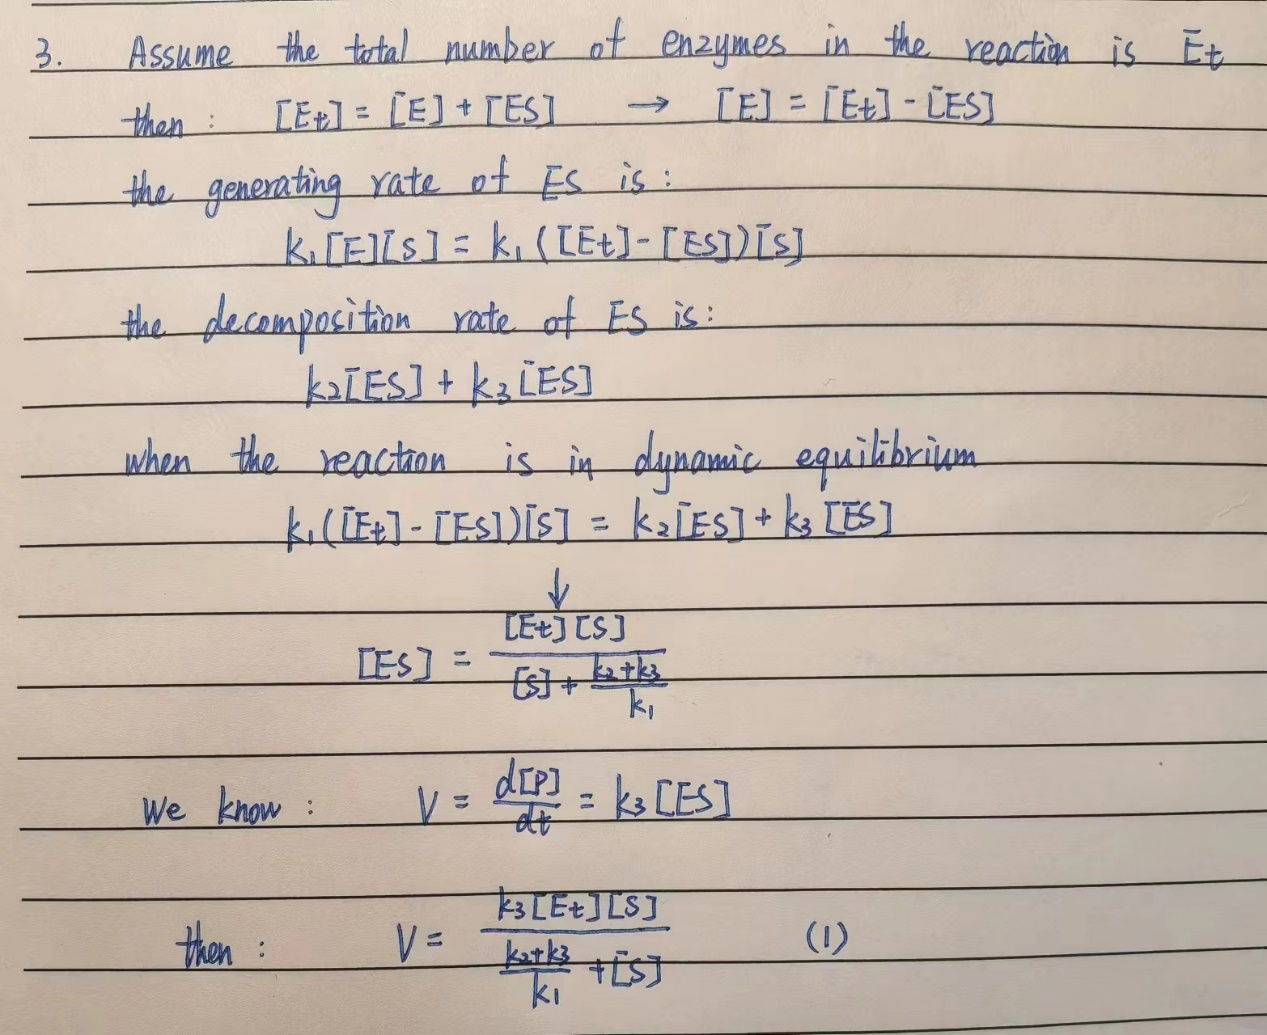 3. Assume the total number of enzymes in the reaction is Et
then : [Et] = [E] + [ES] → [E] = [Et] - [ES]
the generating rate of ES is :
k₁[E][S] = k₁([Et] - [ES])[S]
the decomposition rate of ES is :
k₂[ES] + k₃[ES]
when the reaction is in dynamic equilibrium
k₁([Et] - [ES])[S] = k₂[ES] + k₃[ES]
↓
[ES] = \frac{[Et][S]}{[S] + \frac{k₂+k₃}{k₁}}
We know : V = \frac{d[P]}{dt} = k₃[ES]
then : V = \frac{k₃[Et][S]}{\frac{k₂+k₃}{k₁} + [S]} (1)